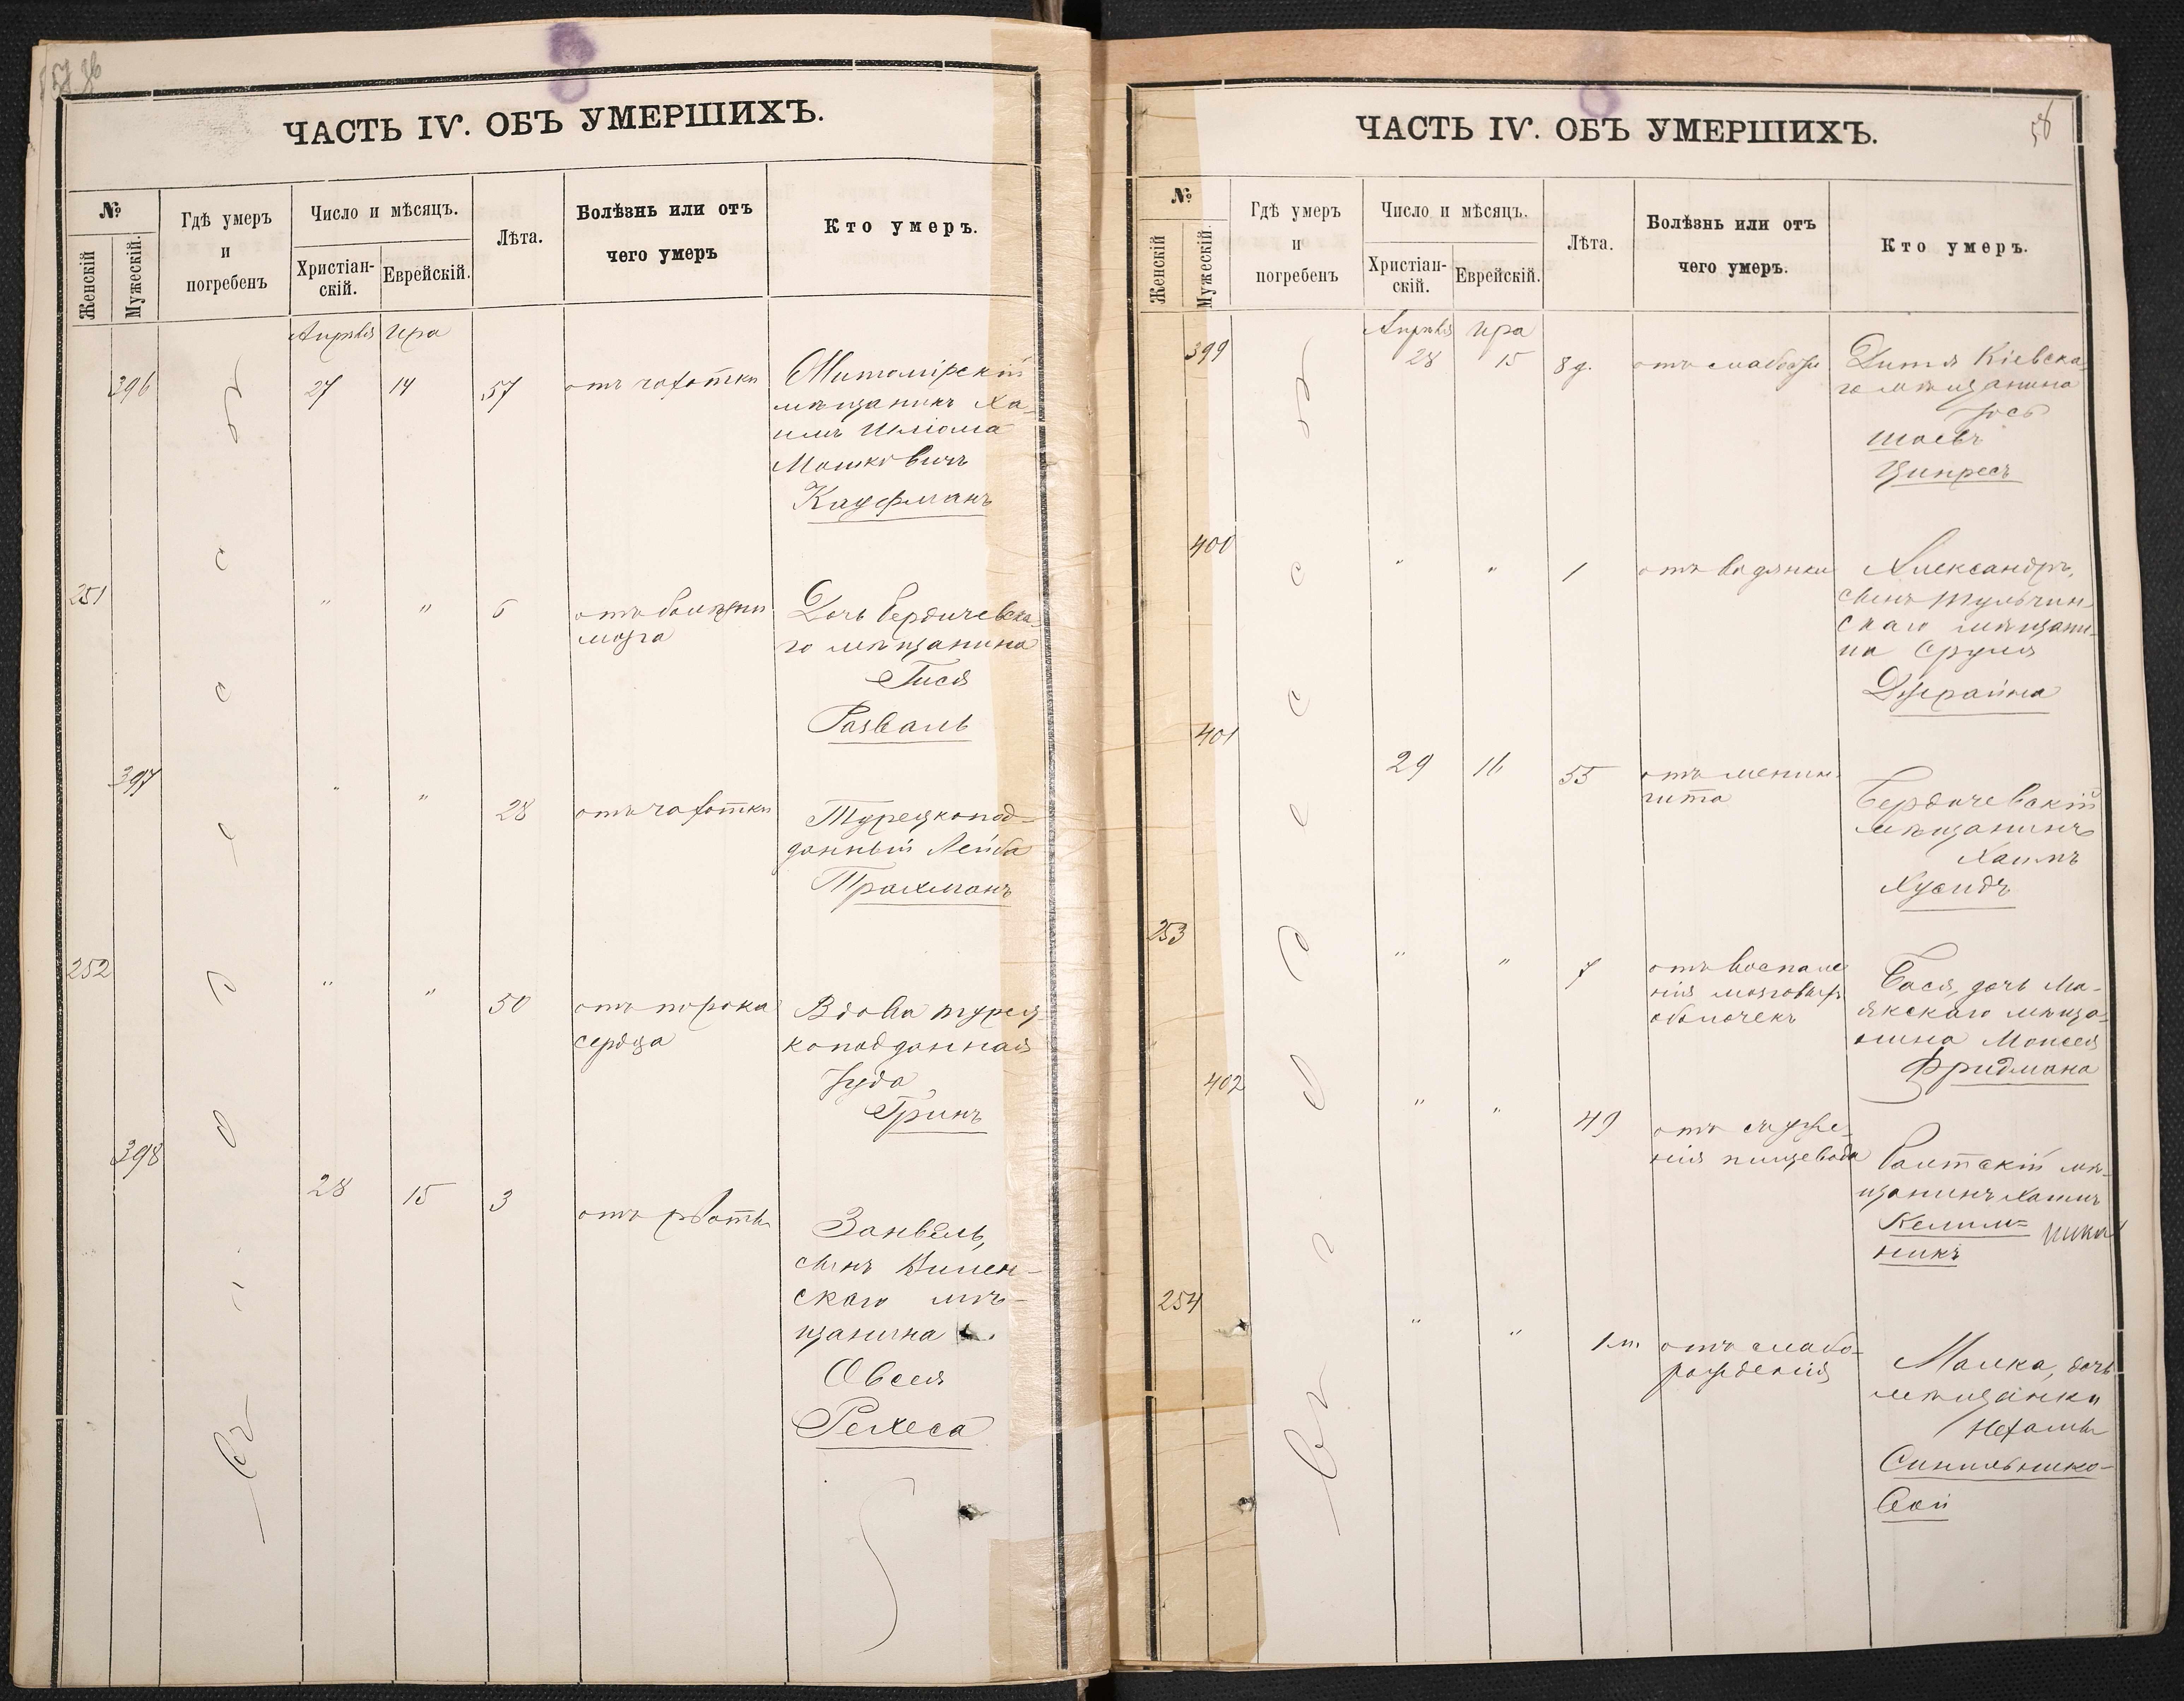 ЧАСТЬ IV. ОБЪ УМЕРШИХЪ.
№
Женскій
Мужескій.
Гдѣ умеръ
и
погребенъ
Число и мѣсяцъ.
Христіан-
скій.
Еврейскій.
Лѣта.
Болѣзнь или отъ
чего умеръ
Кто умеръ.
Апрѣля Ира
396 27 14 57 отъ чахотки
Житомірскій
мѣщанинъ Ха-
имъ Шліома
Мошковичъ
Кауфманъ
251 " " 6 отъ болѣзни
мозга
Дочь бердичевска-
го мѣщанина
Гися
Разваль
397 " " 28 отъ чахотки
Турецкопод-
данный Лейба
Трахманъ
252 " " 50 отъ порока
сердца
Вдова турец-
коподданная
Гринъ
398 28 15 3 отъ рвоты
Занвель,
сынъ Виленс-
скаго мѣ-
щанина
Овсея
Рехеса
ЧАСТЬ IV. ОБЪ УМЕРШИХЪ.
58
№
Женскій
Мужескій.
Гдѣ умеръ
и
погребенъ
Число и мѣсяцъ.
Христіан-
скій.
Еврейскій.
Лѣта.
Болѣзнь или отъ
чего умеръ.
Кто умеръ.
Апрѣля Ира
399 28 15 8 д. отъ слабости
Дитя Кіевска-
го мѣщанина
Іось
Ципресъ
400 " " 1 отъ водянки
Александръ,
сынъ Тульчин-
скаго мѣщани-
на Сруля
401 29 16 55 отъ менин-
гита
Бердичевскій
мѣщанинъ
Хаимъ
Хусидъ
253 " " 7 отъ воспале
нія мозговыхъ
оболочекъ
Бася, дочь Ма-
якскаго мѣща-
нина Моисея
Фридмана
402 " " 49 отъ съуже-
нія пищевода
Балтскій мѣ-
щанинъ Хаимъ
Келим=
никъ
254 " " 1 м. отъ слабо-
рожденія
Малка, дочь
мѣщанки
Нехамы
Синильнико-
вой
Въ